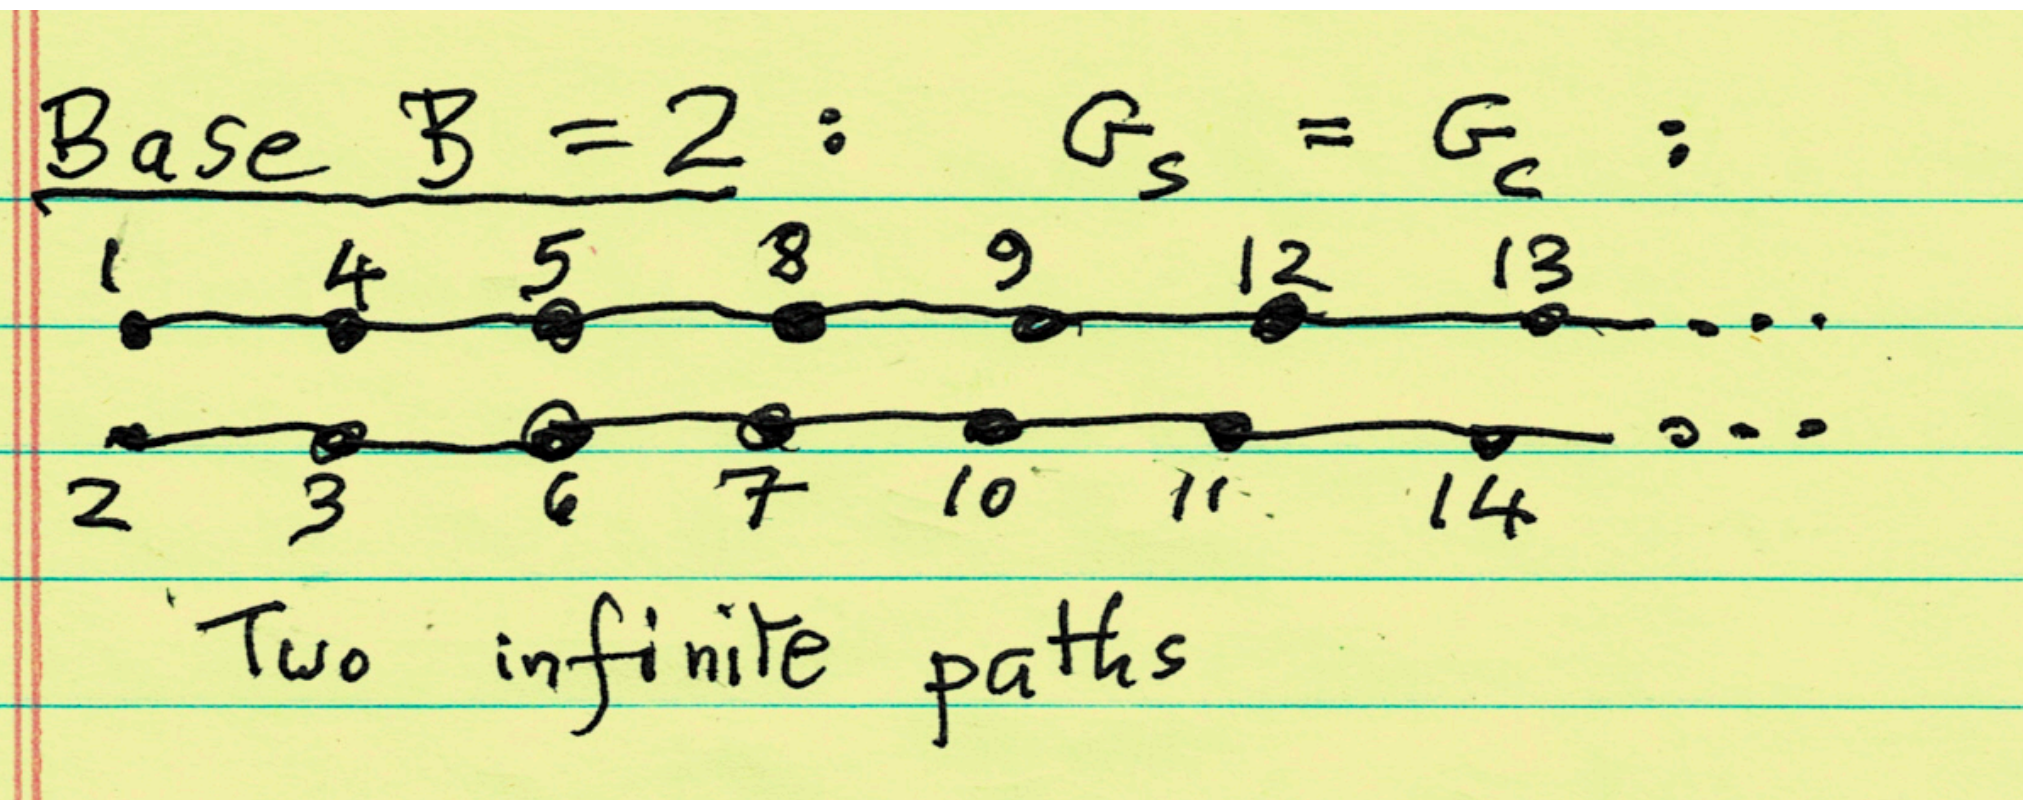 Base B = 2 : G_s = G_c :
1 4 5 8 9 12 13 ...
2 3 6 7 10 11 14 ...
Two infinite paths